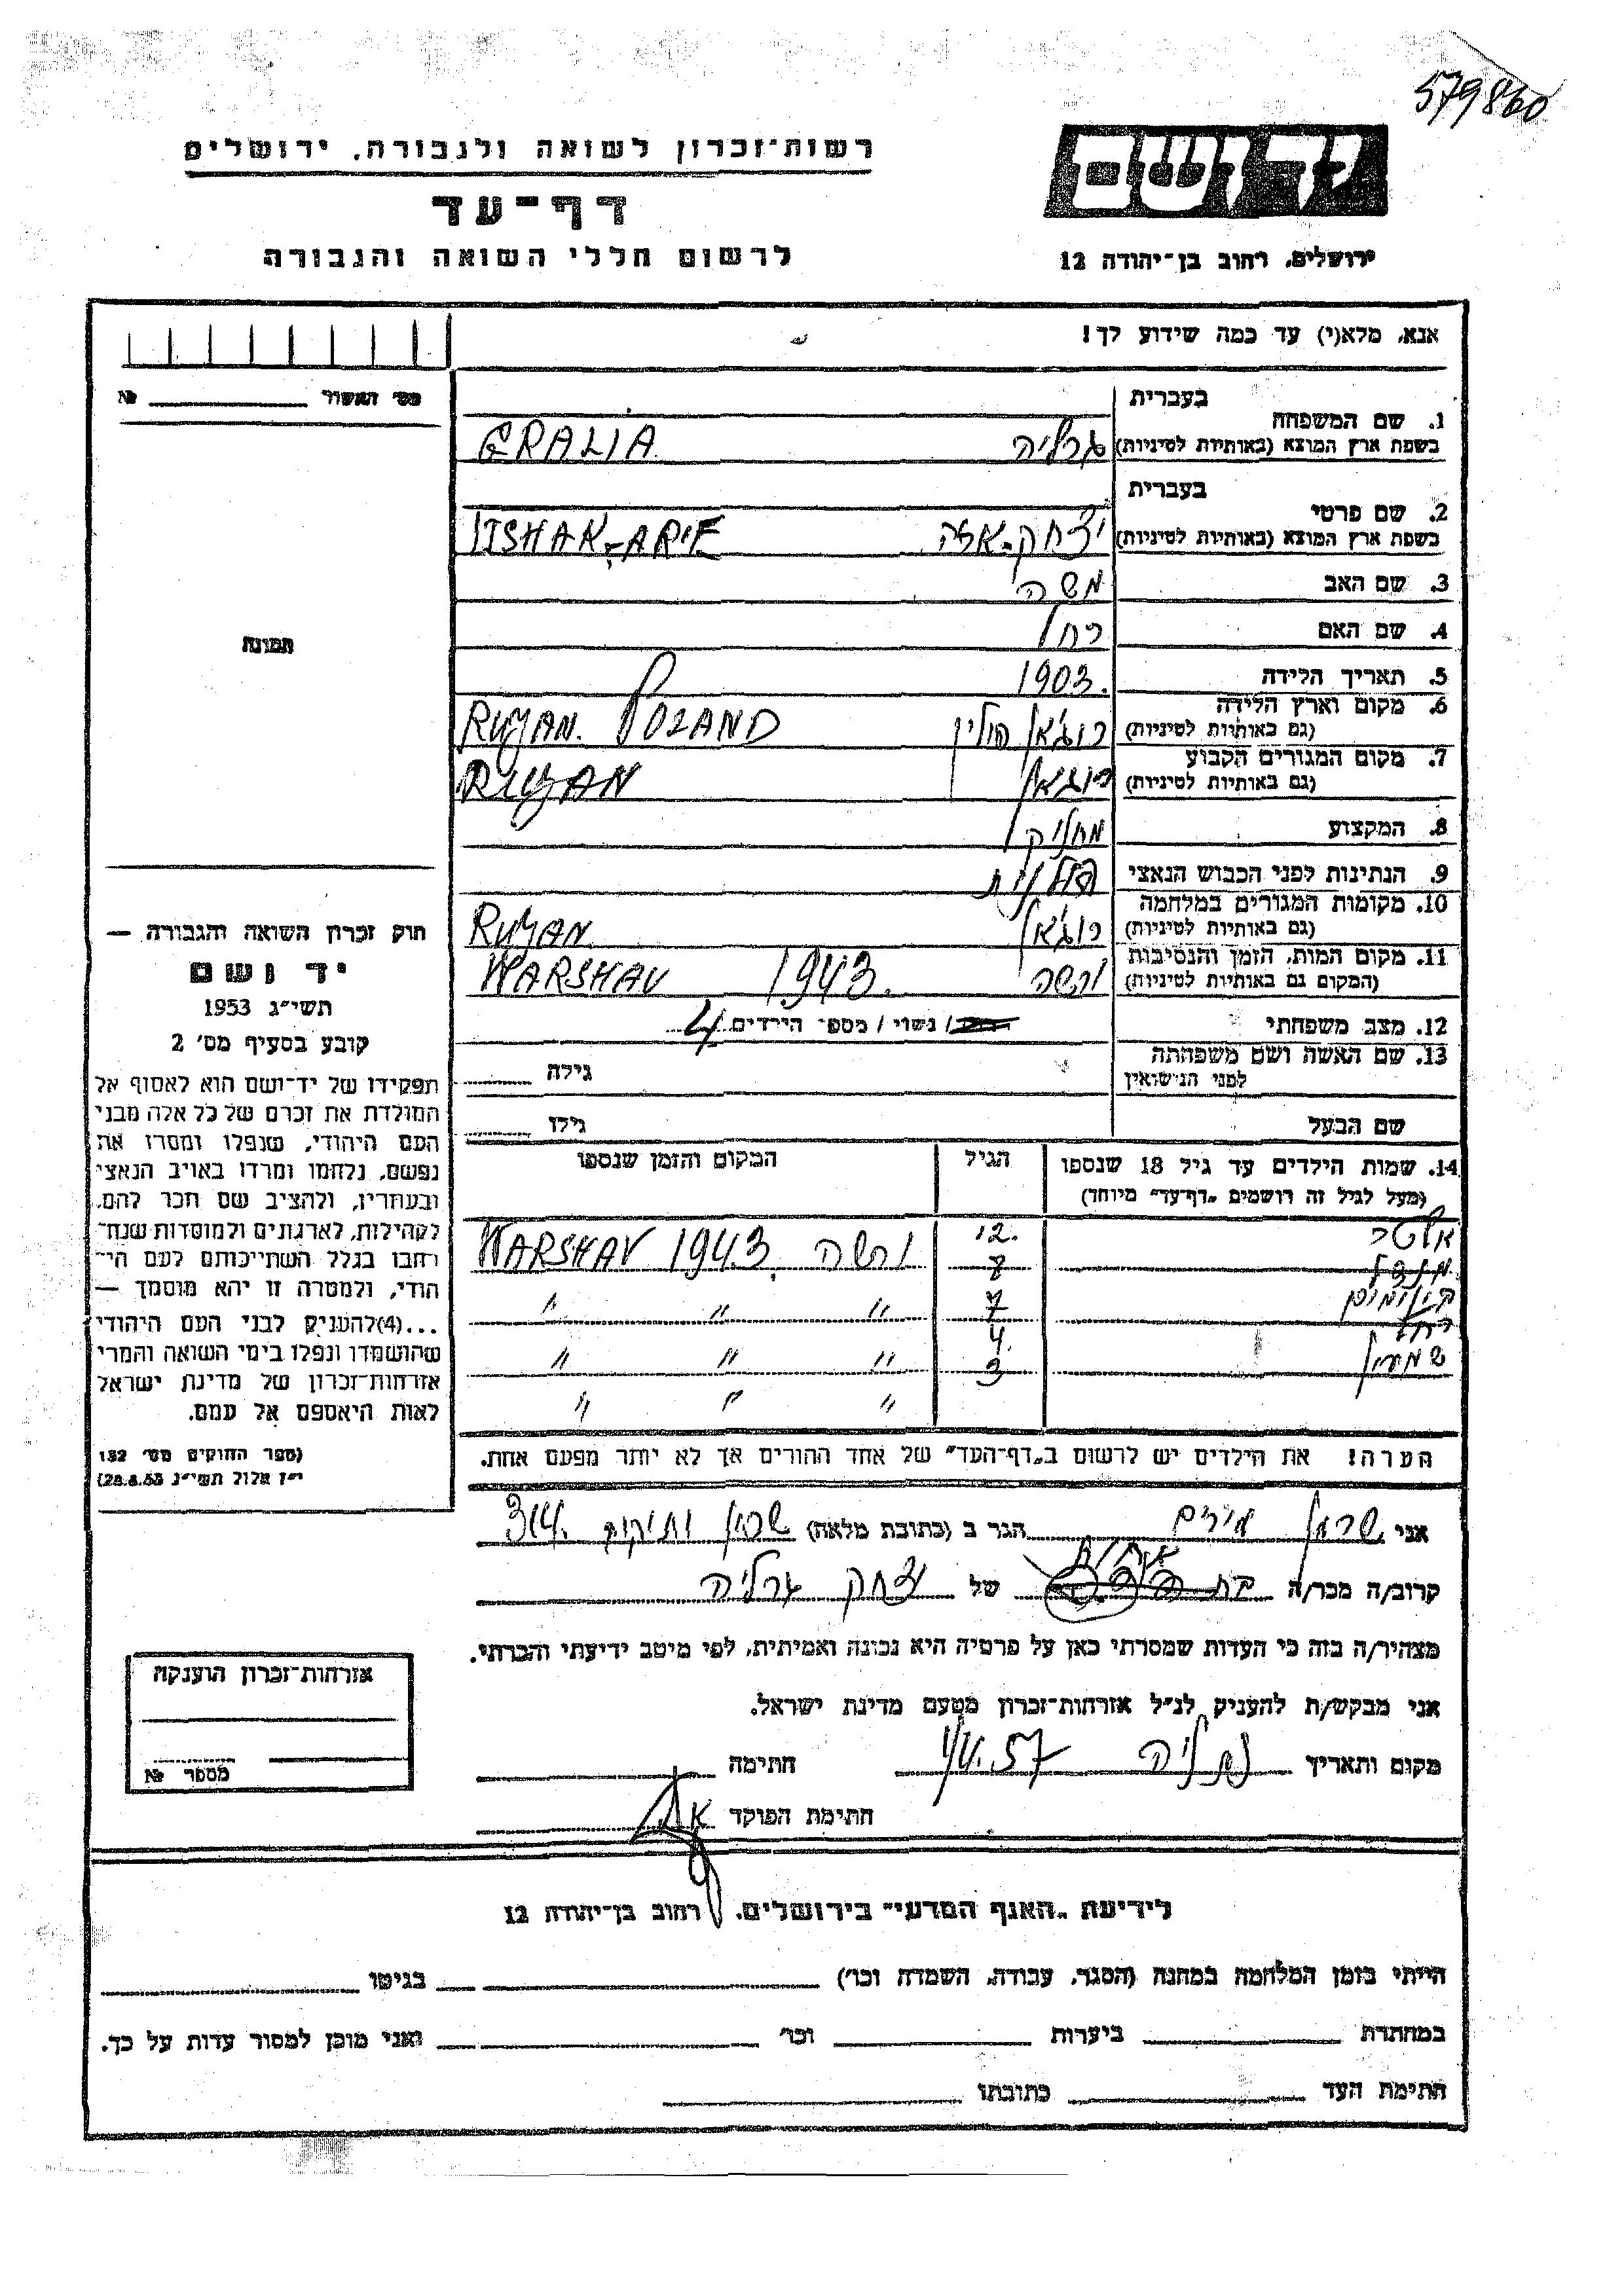 579860
רשות־זכרון לשואה ולגבורה, ירושלים
דף־עד
לרשום חללי השואה והגבורה
יד ושם
ירושלים, רחוב בן־יהודה 12
אנא, מלא(י) עד כמה שידוע לך!
מס׳ האשור № 
1. שם המשפחה בעברית
בשפת ארץ המוצא (באותיות לטיניות) גרליה GRALIA
2. שם פרטי בעברית
בשפת ארץ המוצא (באותיות לטיניות) יצחק-אריה ITSHAK-ARIE
3. שם האב משה
4. שם האם רחל
5. תאריך הלידה 1903.
6. מקום וארץ הלידה
(גם באותיות לטיניות) רוז'אן פולין RUZAN. POLAND
7. מקום המגורים הקבוע
(גם באותיות לטיניות) רוז'אן RUZAN
8. המקצוע
9. הנתינות לפני הכבוש הנאצי פולנית
10. מקומות המגורים במלחמה
(גם באותיות לטיניות) רוז'אן RUZAN
11. מקום המות, הזמן והנסיבות
(המקום גם באותיות לטיניות) ורשה 1943. WARSHAV
12. מצב משפחתי / נשוי / מספר הילדים 4
13. שם האשה ושם משפחתה
לפני הנישואין גילה
שם הבעל גילו
14. שמות הילדים עד גיל 18 שנספו הגיל המקום והזמן שנספו
(מעל לגיל זה רושמים „דף־עד״ מיוחד)
12. ורשה 1943. WARSHAV
8
7 " " "
רחל 4.
שמעון 3 " " "
" " "
הערה! את הילדים יש לרשום ב„דף־העד״ של אחד ההורים אך לא יותר מפעם אחת.
תמונה
חוק זכרון השואה והגבורה —
יד ושם
תשי״ג 1953
קובע בסעיף מס׳ 2
תפקידו של יד־ושם הוא לאסוף אל
המולדת את זכרם של כל אלה מבני
העם היהודי, שנפלו ומסרו את
נפשם, נלחמו ומרדו באויב הנאצי
ובעוזריו, ולהציב שם וזכר להם,
לקהילות, לארגונים ולמוסדות שנח־
רבו בגלל השתייכותם לעם הי־
הודי, ולמטרה זו יהא מוסמך —
...(4) להעניק לבני העם היהודי
שהושמדו ונפלו בימי השואה והמרי
אזרחות־זכרון של מדינת ישראל
לאות היאספם אל עמם.
(ספר החוקים מס׳ 132
י״ז אלול תשי״ג 28.8.53)
אני מרים הגר ב (כתובת מלאה) 314.
קרוב/ה מכר/ה אחות של יצחק גרליה
מצהיר/ה בזה כי העדות שמסרתי כאן על פרטיה היא נכונה ואמיתית, לפי מיטב ידיעתי והכרתי.
אני מבקש/ת להעניק לנ״ל אזרחות־זכרון מטעם מדינת ישראל.
מקום ותאריך נתניה חתימה
חתימת הפוקד
אזרחות־זכרון הוענקה
מספר №
לידיעת „האגף המדעי״ בירושלים, רחוב בן־יהודה 12
הייתי בזמן המלחמה במחנה (הסגר, עבודה, השמדה וכו׳) בגיטו
במחתרת ביערות וכו׳ ואני מוכן למסור עדות על כך.
חתימת העד כתובתו